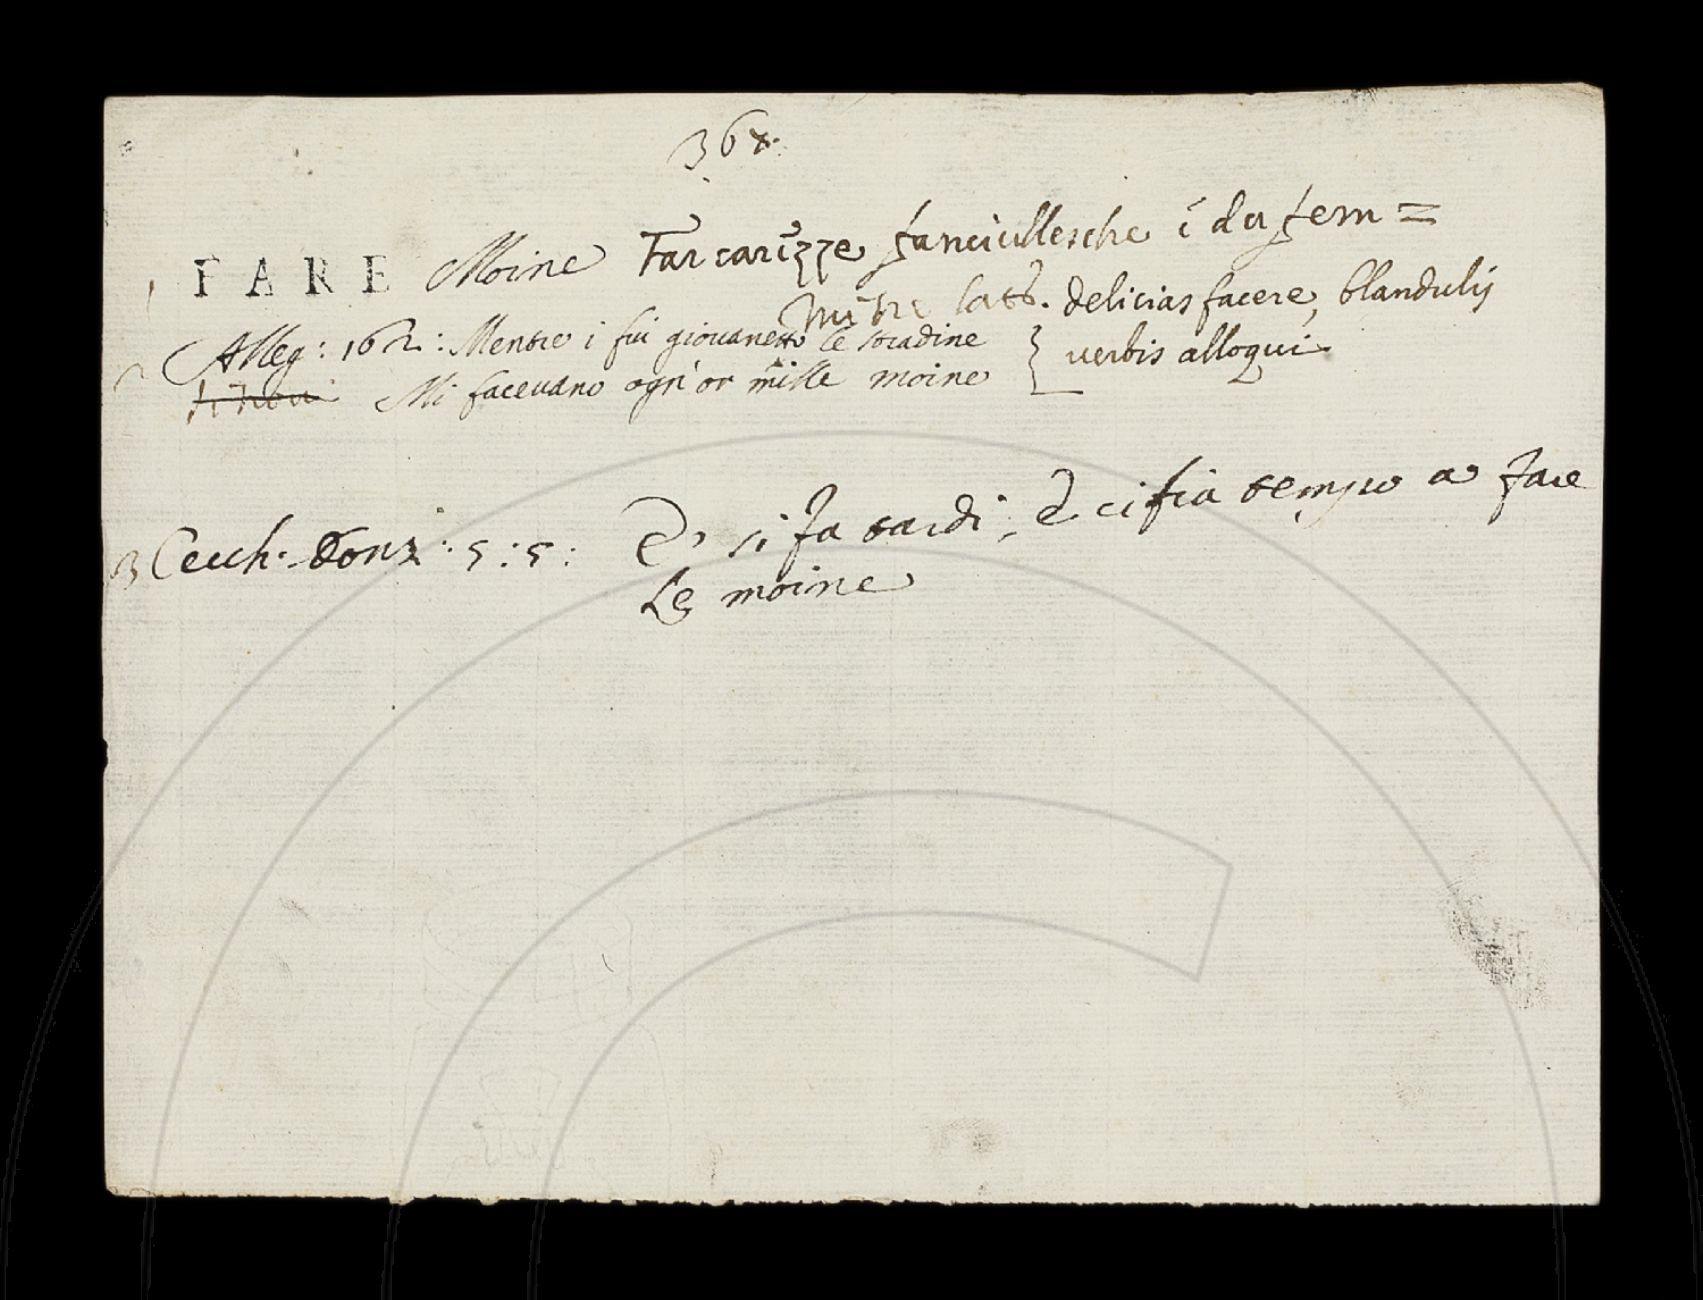 368.
FARE Moine Far carezze fanciullesche e da fem=
mine latt. delicias facere, blandulij
verbis alloqui
Alleg: 162: Mentre i fui giovanetto le Citadine
Mi facevano ogn'or mille moine
3 Cecch. Donz: 5:5: E' si fa tardi; e ci fia tempo a fare
Le moine